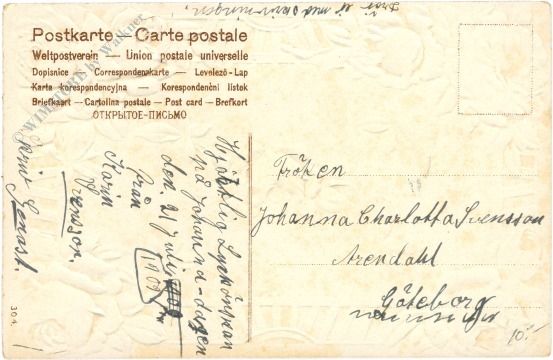 Postkarte — Carte postale
Weltpostverein — Union postale universelle
Dopisnice — Correspondenskarte — Levelező-Lap
Karta korespondencyjna — Korespondenční lístek
Briefkaart — Cartolina postale — Post card — Brefkort
ОТКРЫТОЕ-ПИСЬМО
Hjärtlig Lyckönskan
på Johanna-dagen
den 21 Juli
1909
från
Karin
Svensson.
Skriv genast.
Fröken
Johanna Charlotta Svensson
Arendahl
Göteborg
10:-
304